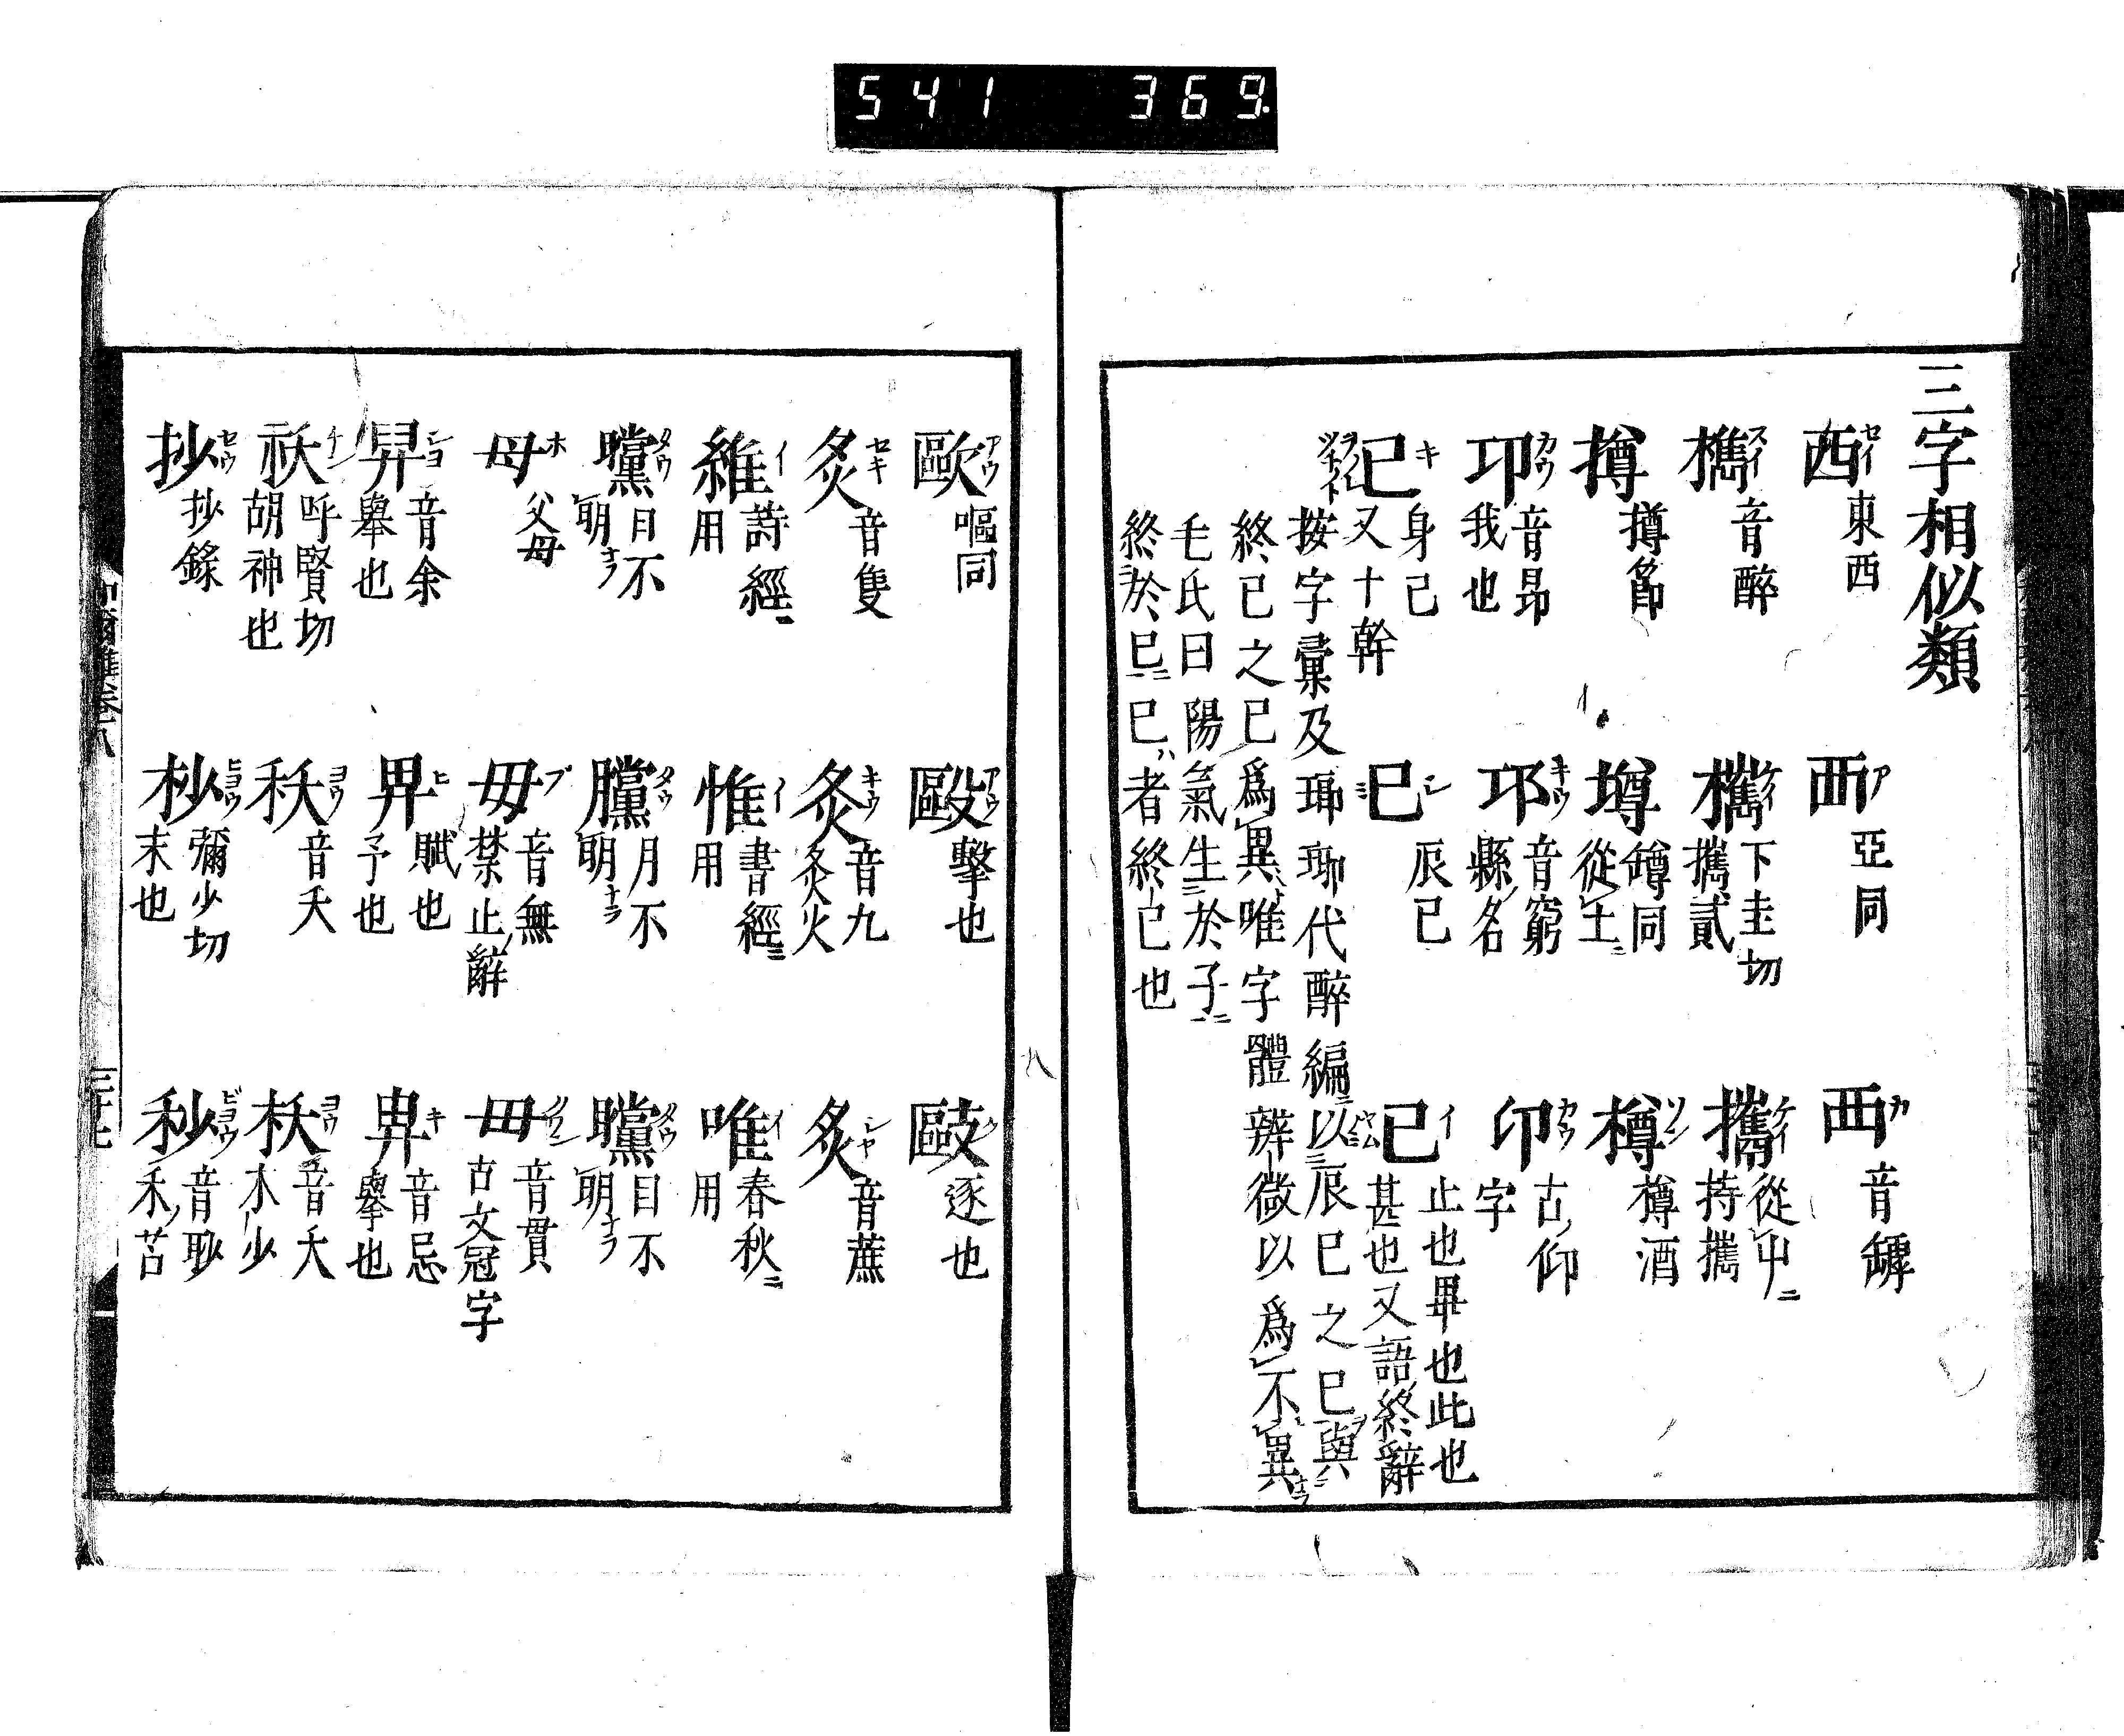 541 369
三字相似類
西 セイ 東西
襾 ア 亞同
覀 カ 音罅
檇 スイ 音醉
欈 ケイ 下圭切 攜貳
攜 ケイ 從屮 持攜
撙 撙節
墫 罇同 從土
樽 ソン 樽酒
卬 カウ 音昂 我也
邛 キウ 音窮 縣名
卬 カウ 古仰字
己 キ 身己 又十幹
巳 シ ミ 辰巳
已 イ ヤム 止也畢也此也 甚也又語終辭
按字彙及瑯琊代醉編以辰巳之巳與
終已之已爲異唯字體辨微以爲不異
毛氏曰陽氣生於子
終於巳巳者終已也
歐 アウ 嘔同
毆 アウ 擊也
敺 ク 逐也
炙 セキ 音隻
灸 キウ 音九 灸火
炙 シヤ 音蔗
維 イ 詩經用
惟 イ 書經用
唯 イ 春秋用
曭 タウ 日不明
臘 タウ 月不明
矘 タウ 目不明
母 ホ 父母
毋 ブ 音無 禁止辭
毌 クワン 音貫 古文冠字
舁 ヨ 音余 擧也
畀 ヒ 賦也 予也
畁 キ 音忌 擧也
祆 ケン 呼賢切 胡神也
秗 ヨウ 音夭
枖 ヨウ 音夭 木少
抄 セウ 抄錄
杪 ヒヨウ 彌少切 末也
秒 ビヨウ 音眇 禾芒
和爾雅卷八
三十七